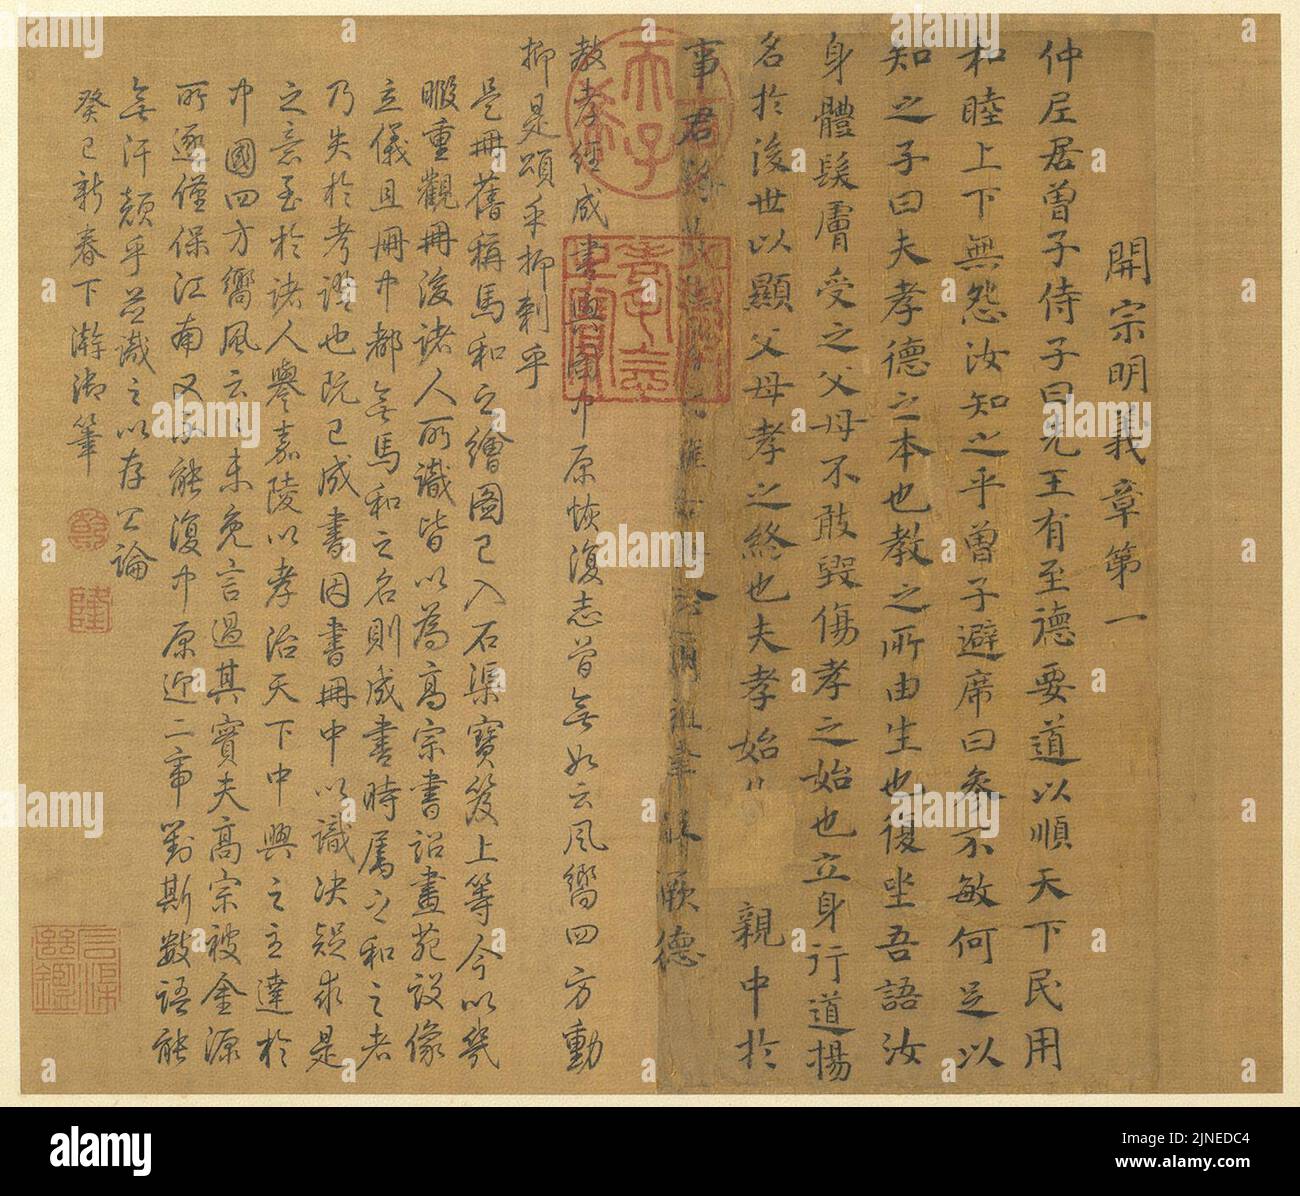 開宗明義章第一
仲尼居曾子侍子曰先王有至德要道以順天下民用
和睦上下無怨汝知之乎曾子避席曰參不敏何足以
知之子曰夫孝德之本也教之所由生也復坐吾語汝
身體髮膚受之父母不敢毀傷孝之始也立身行道揚
名於後世以顯父母孝之終也夫孝始 親中於
事君 厥德
教孝經成書與圖中原恢復志曾無如云風嚮四方動
抑是頌乎抑刺乎
是冊舊稱馬和之繪圖已入石渠寶笈上等今以幾
暇重觀冊後諸人所識皆以為高宗書詔畫苑設像
立儀且冊中都無馬和之名則成書時屬之和之者
乃失於考證也既已成書因書冊中以識決疑求是
之意至於諸人譽嘉陵以孝治天下中興之主達於
中國四方嚮風云云未免言過其實夫高宗被金源
所逐僅保江南又不能復中原近二帝對斯數語能
無汗顏乎並識之以存公論
癸巳新春下澣御筆
alamy
2JNEDC4
www.alamy.com